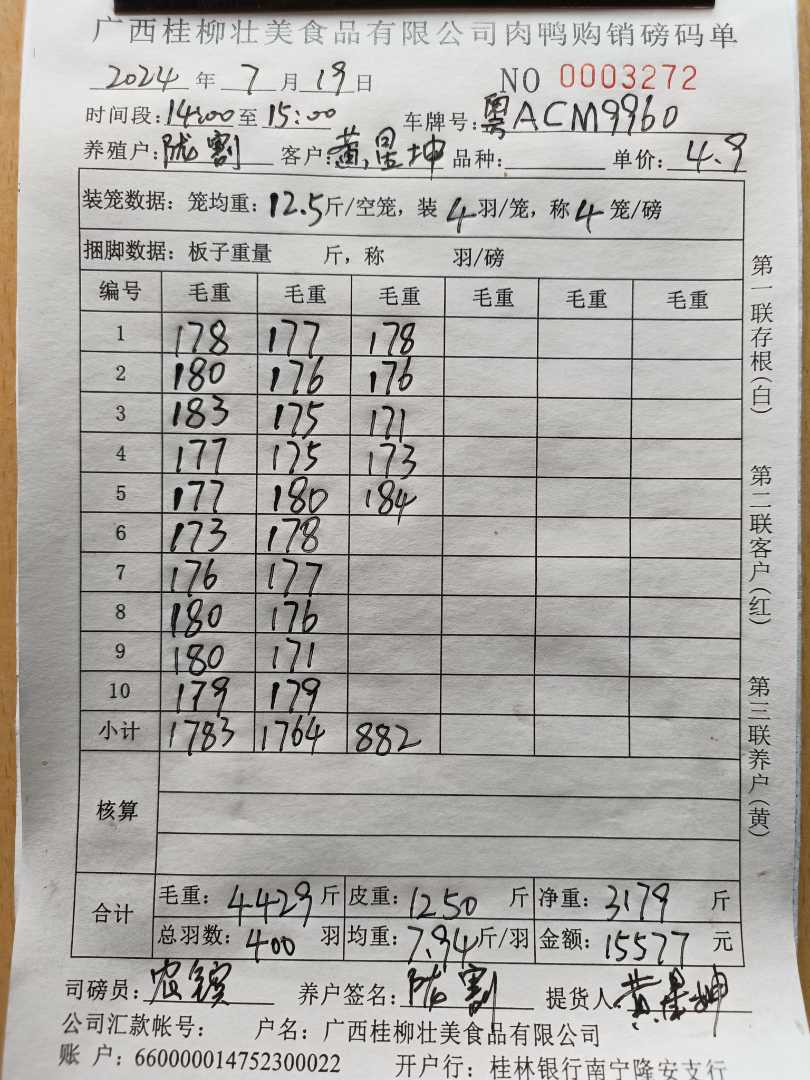 广西桂柳壮美食品有限公司肉鸭购销磅码单
2024 年 7 月 19 日 NO 0003272
时间段: 14:00 至 15:00 车牌号: 粤ACM9960
养殖户: 陇割 客户: 黄星坤 品种: 单价: 4.9
装笼数据: 笼均重: 12.5 斤/空笼, 装 4 羽/笼, 称 4 笼/磅
捆脚数据: 板子重量 斤, 称 羽/磅
编号 毛重 毛重 毛重 毛重 毛重 毛重
1 178 177 178
2 180 176 176
3 183 175 171
4 177 175 173
5 177 180 184
6 173 178
7 176 177
8 180 176
9 180 171
10 179 179
小计 1783 1764 882
核算
合计 毛重: 4429 斤 皮重: 1250 斤 净重: 3179 斤
总羽数: 400 羽 均重: 7.94 斤/羽 金额: 15577 元
司磅员: 养户签名: 陇割 提货人: 黄星坤
公司汇款帐号: 户名: 广西桂柳壮美食品有限公司
账 户: 660000014752300022 开户行: 桂林银行南宁隆安支行
第一联存根(白) 第二联客户(红) 第三联养户(黄)